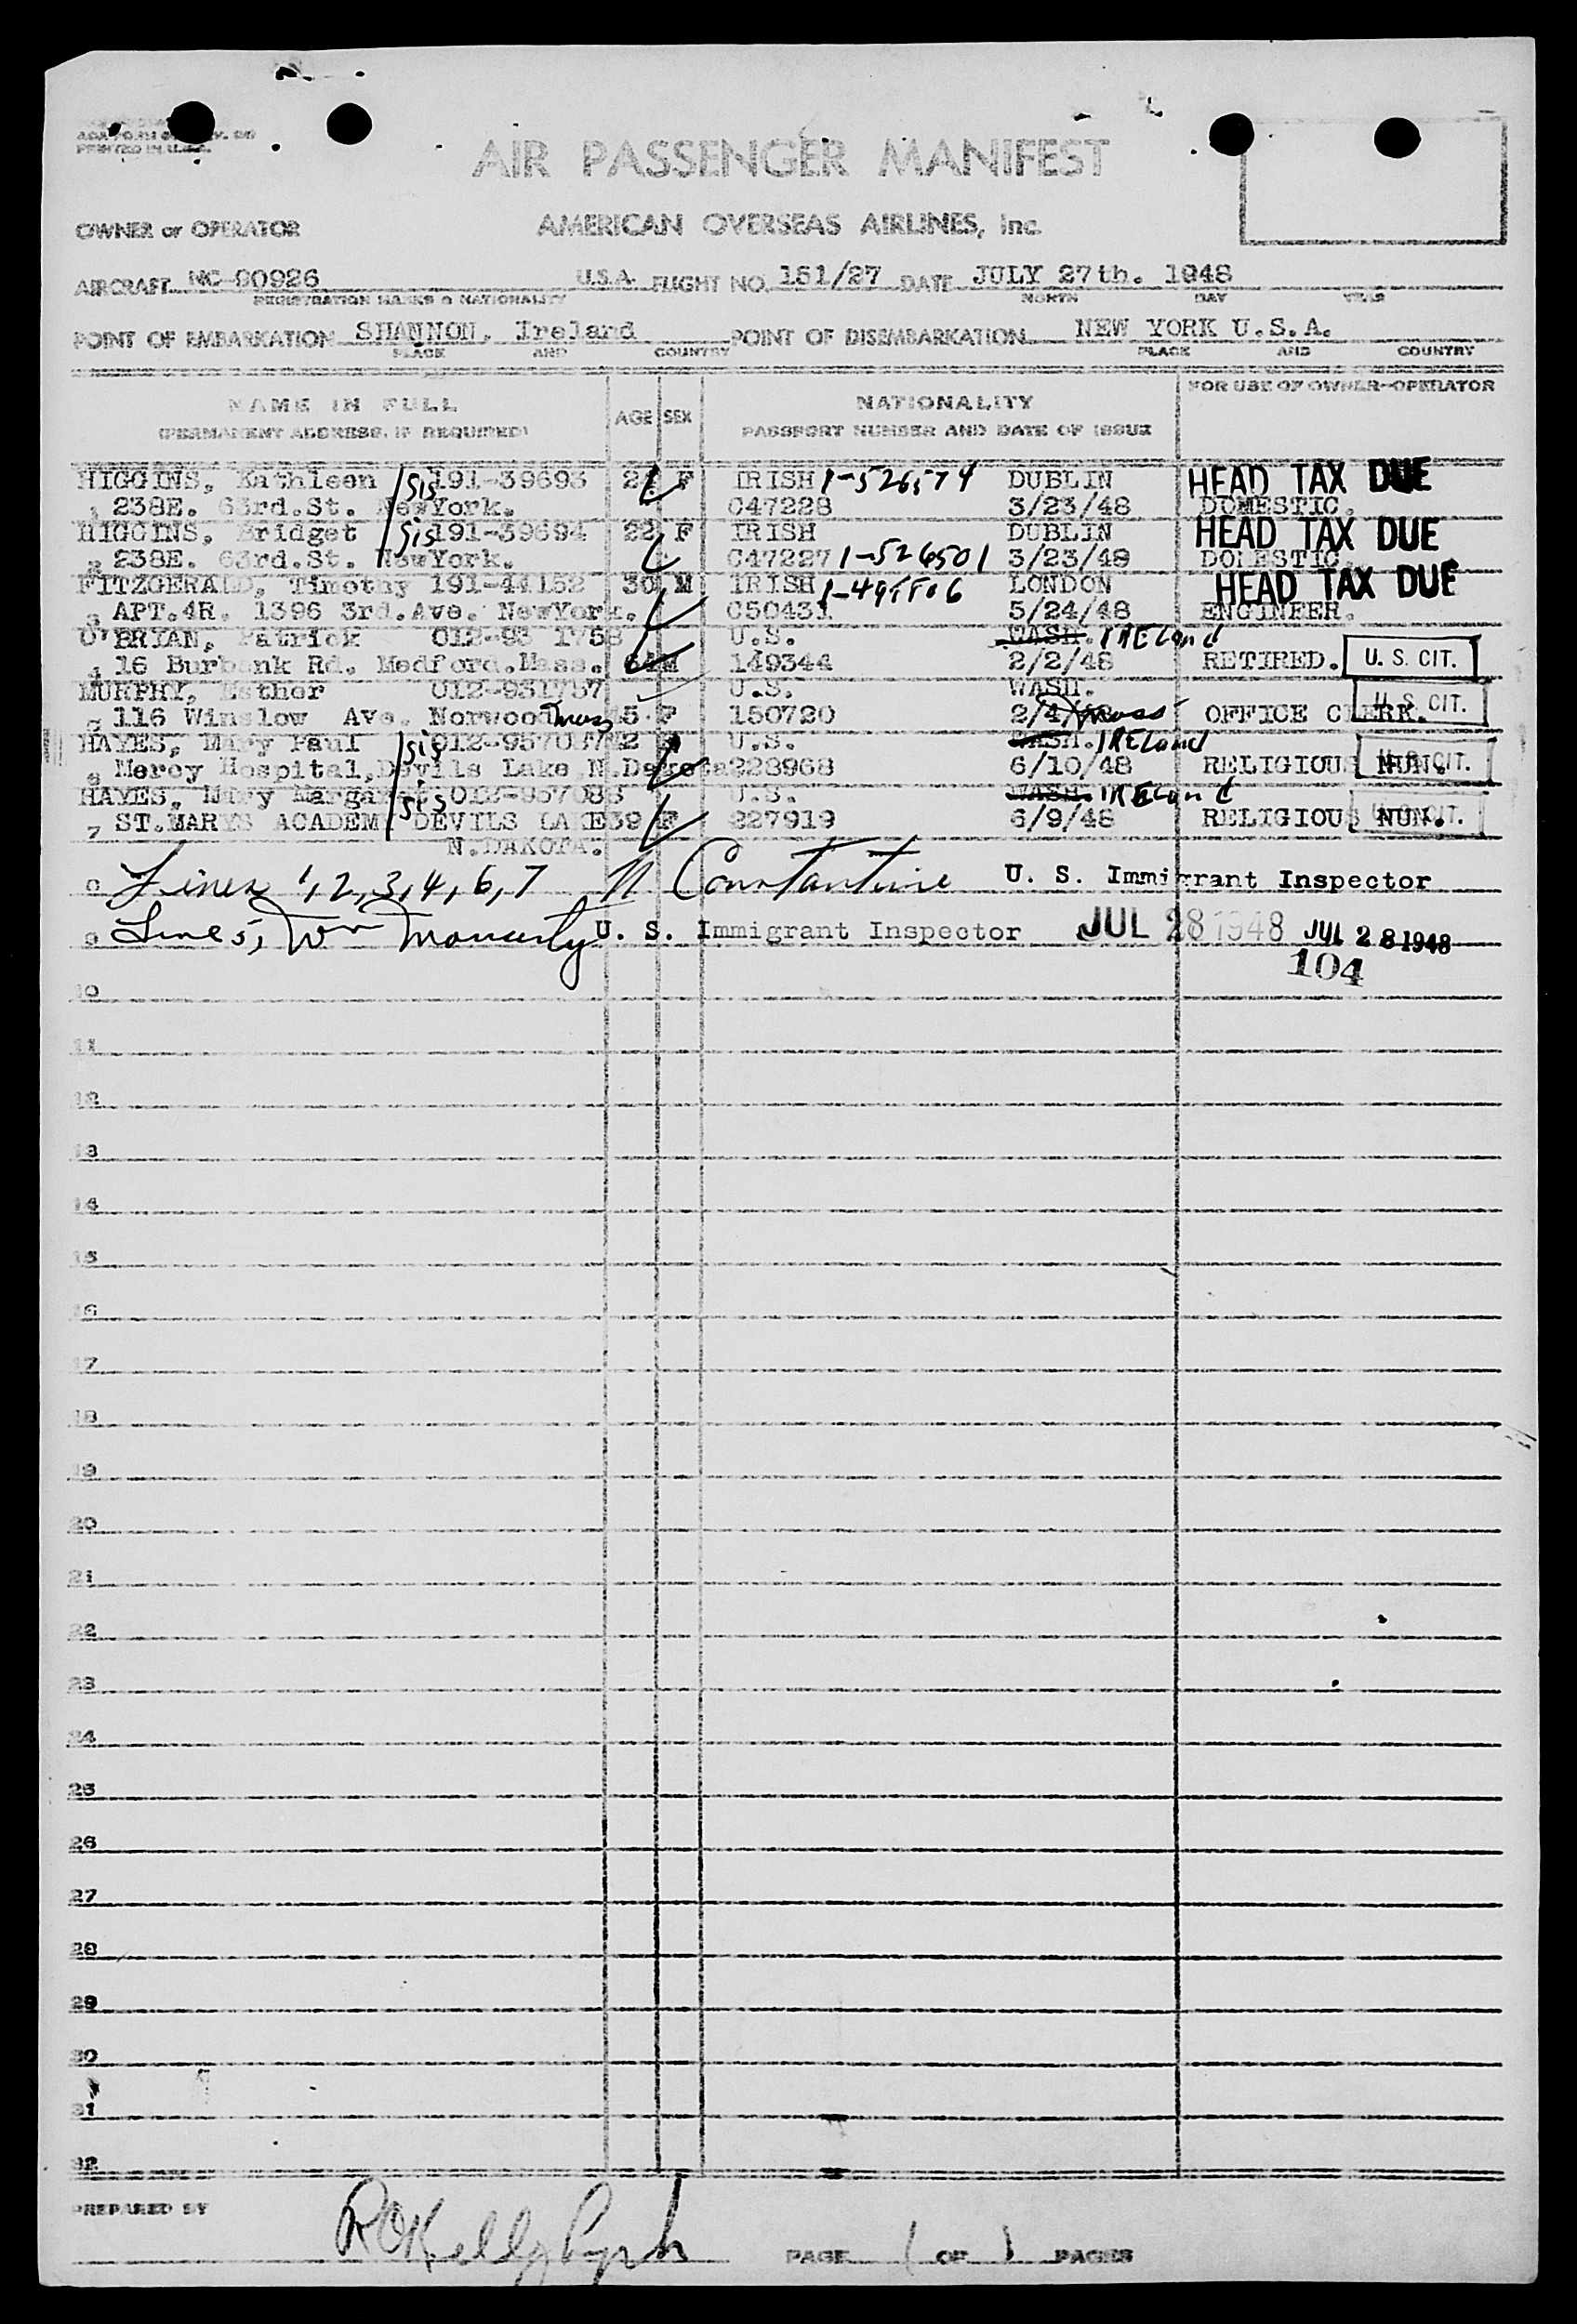 PRINTED IN U.S.A.
AIR PASSENGER MANIFEST
OWNER or OPERATOR AMERICAN OVERSEAS AIRLINES, Inc.
AIRCRAFT NC-90926 U.S.A. FLIGHT NO. 151/27 DATE JULY 27th. 1948
REGISTRATION MARKS & NATIONALITY MONTH DAY YEAR
POINT OF EMBARKATION SHANNON, Ireland POINT OF DISEMBARKATION NEW YORK U.S.A.
PLACE AND COUNTRY PLACE AND COUNTRY
NAME IN FULL AGE SEX NATIONALITY FOR USE OF OWNER-OPERATOR
(PERMANENT ADDRESS, IF REQUIRED) PASSPORT NUMBER AND DATE OF ISSUE
HIGGINS, Kathleen sis 191-39693 F IRISH DUBLIN HEAD TAX DUE
1 238E. 63rd.St. NewYork. C47228 3/23/48 DOMESTIC.
HIGGINS, Bridget sis 191-39694 22 F IRISH DUBLIN HEAD TAX DUE
2 238E. 63rd.St. NewYork. C47227 1-526501 3/23/48 DOMESTIC.
FITZGERALD, Timothy 191-44152 30 M IRISH LONDON HEAD TAX DUE
3 APT.4R. 1396 3rd.Ave. NewYork. C50431 5/24/48 ENGINEER.
O'BRIAN, Patrick 012-93 1758 U.S. WASH. IRELand
4 16 Burbank Rd. Medford.Mass. M 149344 2/2/48 RETIRED. U. S. CIT.
MURPHY, Esther 012-931757 U.S. WASH.
5 116 Winslow Ave. Norwood Mass F 150720 Mass OFFICE CLERK. U. S. CIT.
HAYES, Mary Paul sis U.S. WASH. IRELand
6 Mercy Hospital, Devils Lake N.Dakota 228968 6/10/48 RELIGIOUS NUN. U. S. CIT.
HAYES, Mary Margaret sis U.S. WASH. IRELand
7 ST.MARYS ACADEMY DEVILS LAKE 39 F 227919 6/9/48 RELIGIOUS NUN. U. S. CIT.
N.DAKOTA.
8 Lines 1,2,3,4,6,7 N Constantine U. S. Immigrant Inspector
9 Line 5, Wm Moriarty U. S. Immigrant Inspector JUL 28 1948 JUL 28 1948
104
10
11
12
13
14
15
16
17
18
19
20
21
22
23
24
25
26
27
28
29
30
31
32
PREPARED BY
PAGE 1 OF 1 PAGES